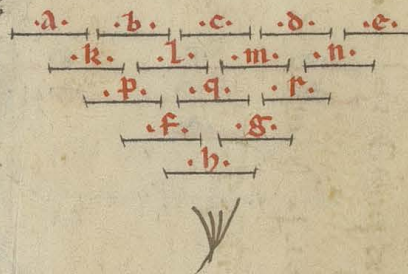 ·a· ·b· ·c· ·d· ·e·
·k· ·l· ·m· ·n·
·p· ·q· ·r·
·f· ·g·
·h·